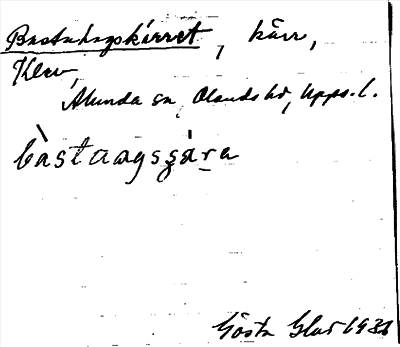 Bastuhagskärret, kärr,
Klev,
Alunda sn, Olands hd, Upps. l.
bàstaagsşàra
Gösta Glas 193